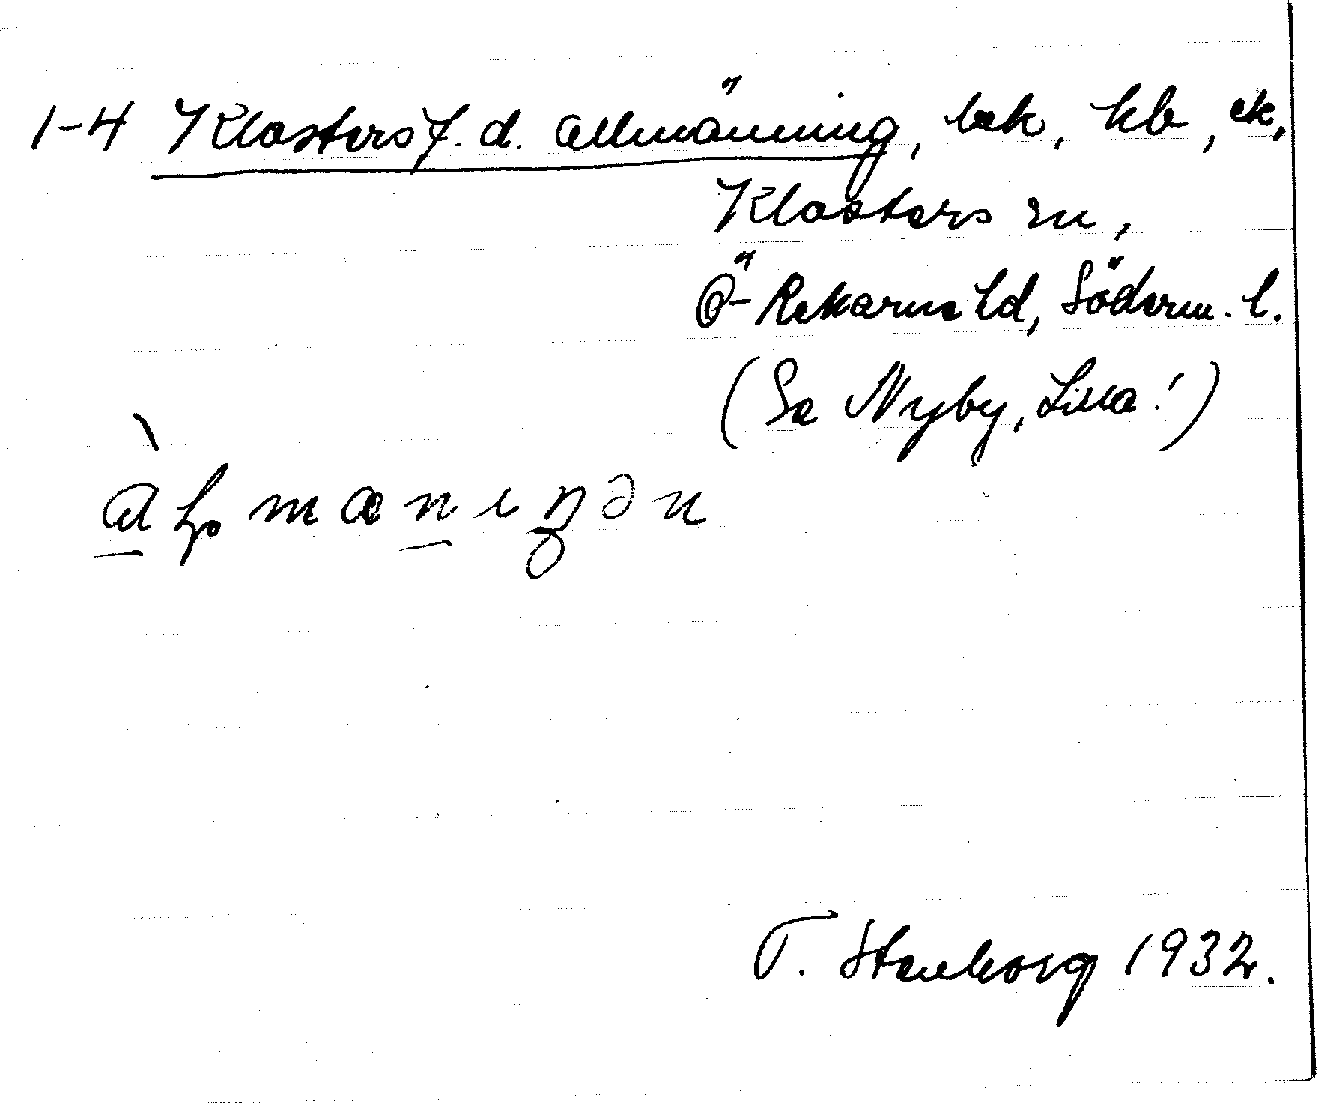 1-4 Klosters f. d. allmänning, bek, hb, ek,
Klosters sn,
Ö-Rekarne hd, Söderm. l.
(Se Nyby, Lilla!)
T. Stenborg 1932.